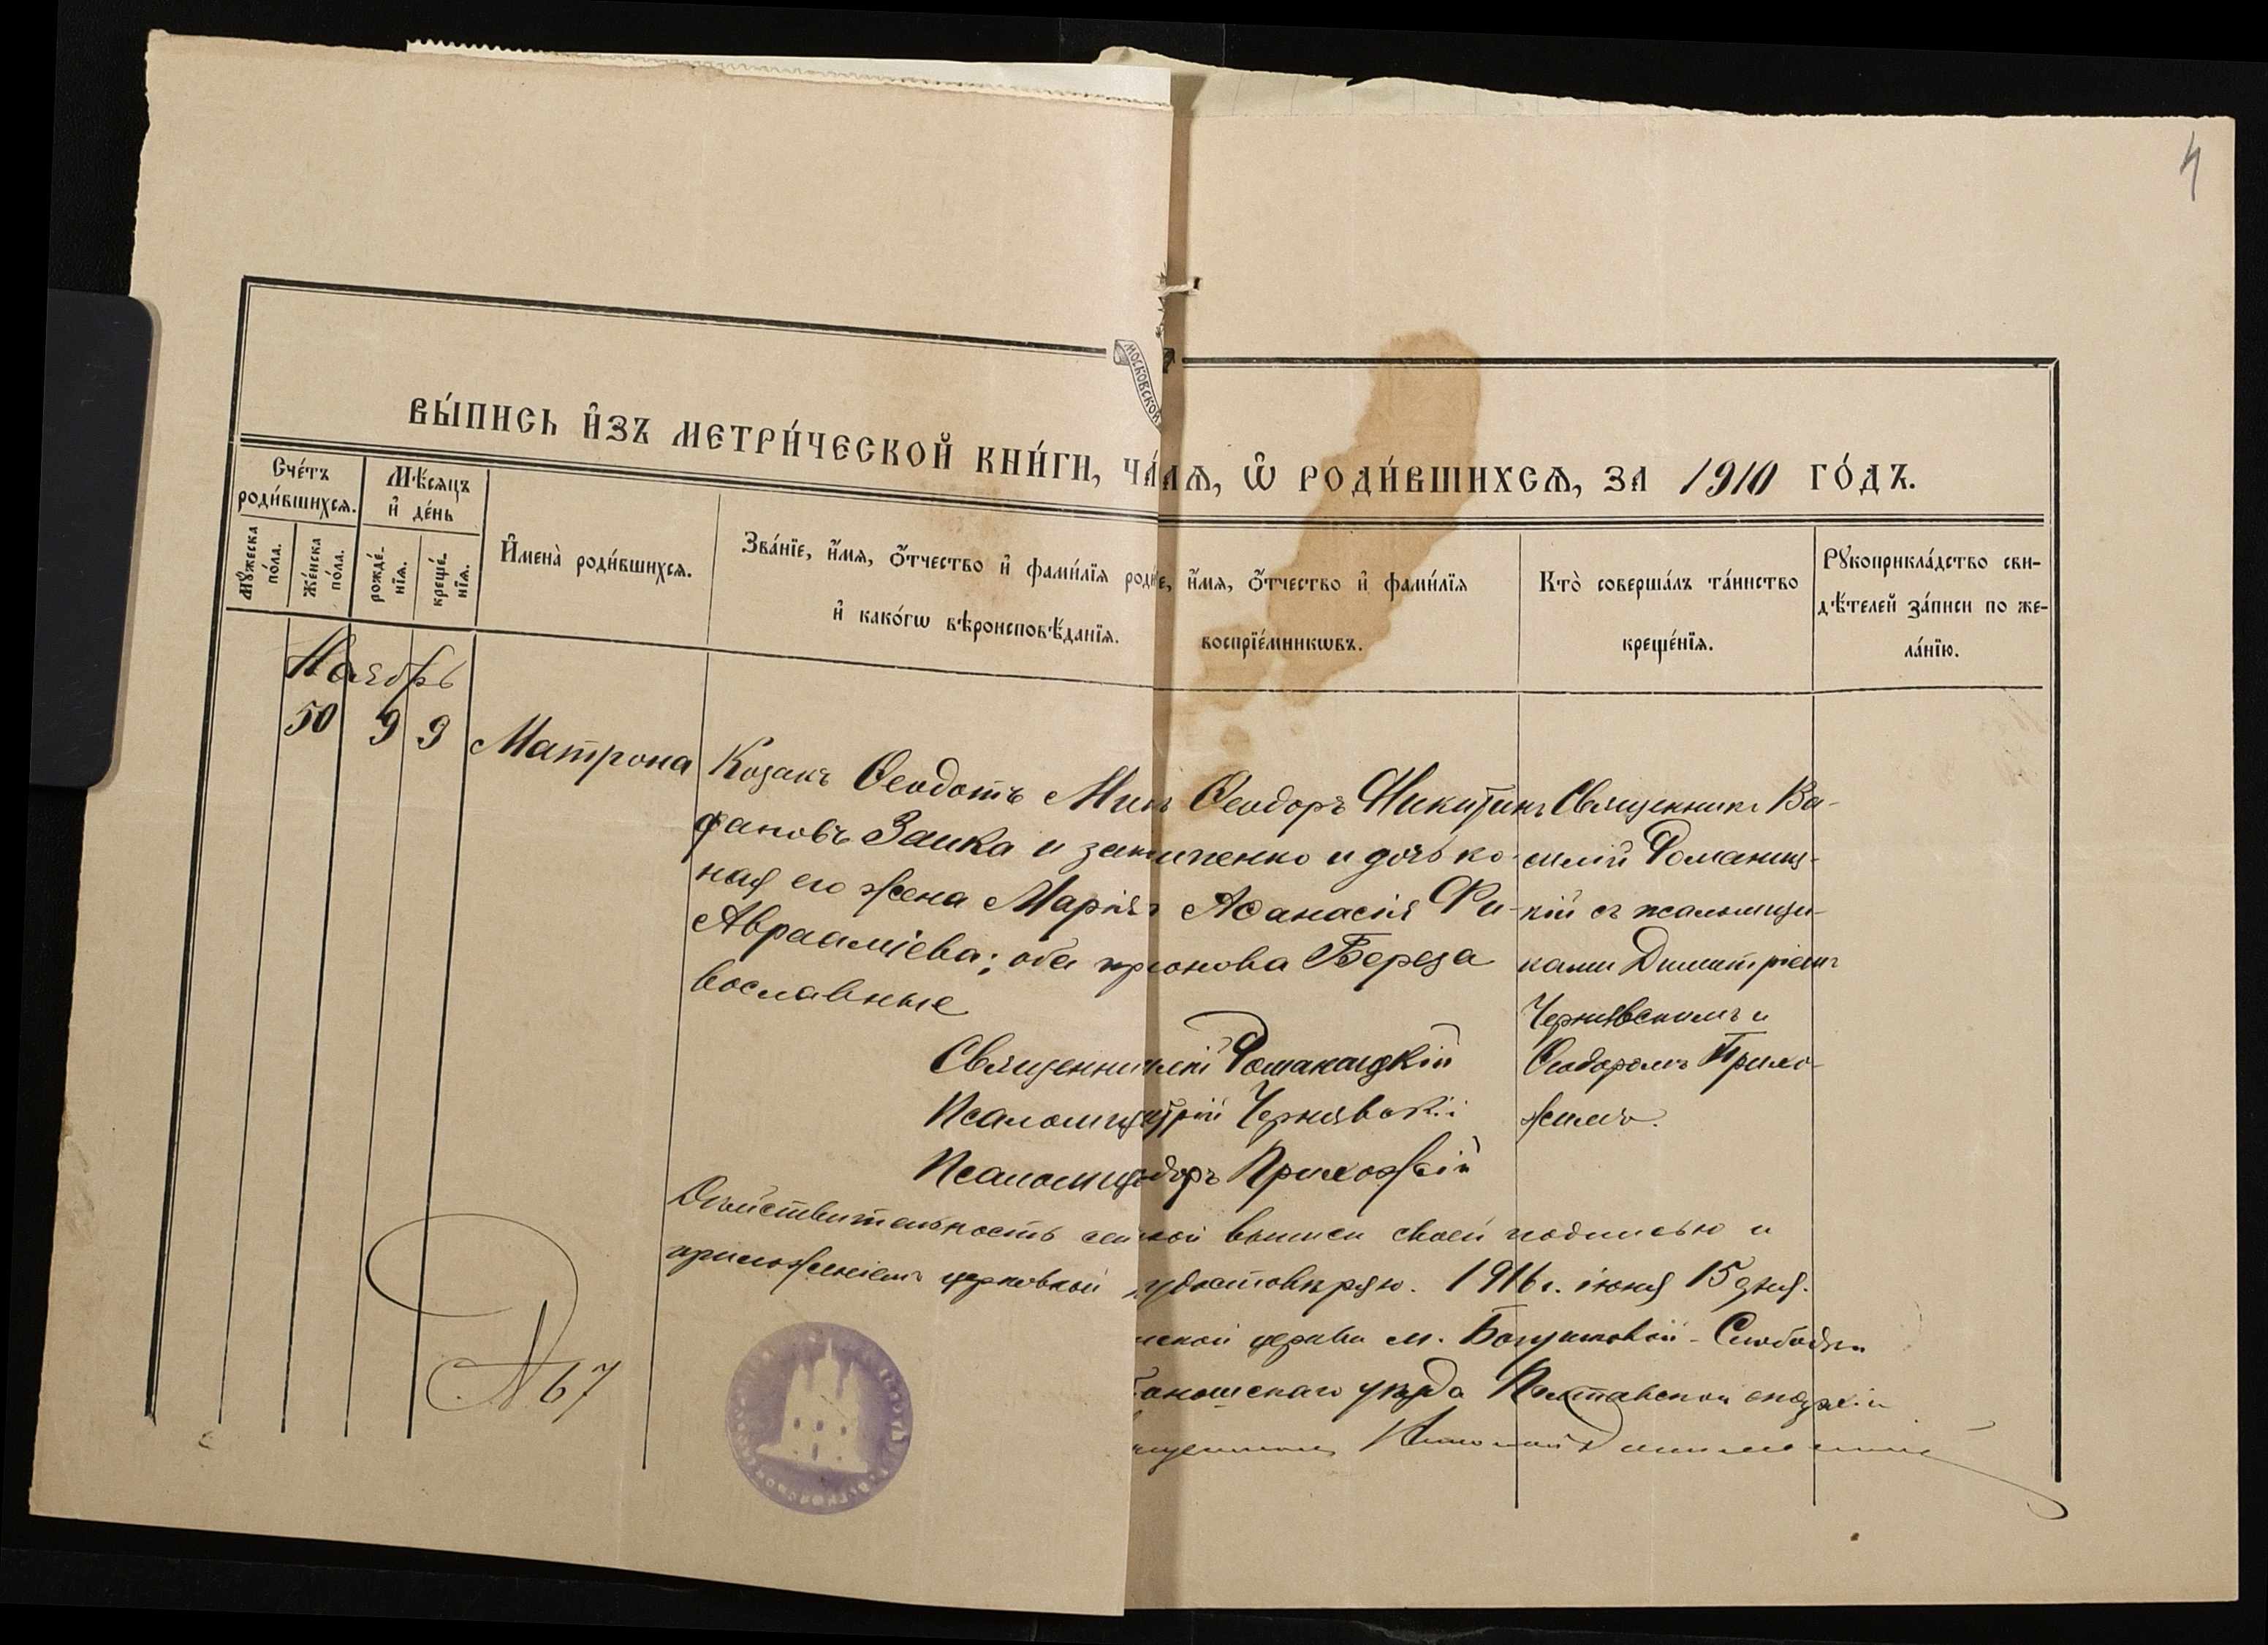 4
МОСКОВСКОЙ
ВЫ́ПИСЬ И҆́ЗЪ МЕТРИ́ЧЕСКОЙ КНИ́ГИ, ЧА́ АѦ, Ѡ҆ РОДИ́ВШИХСѦ, ЗА 1910 ГО́ДЪ.
Сче́тъ роди́вшихсѧ.
Мꙋ́жеска по́ла.
Же́нска по́ла.
Мѣ́сѧцъ и҆ де́нь
рожде́-нїѧ.
креще́-нїѧ.
И҆мена̀ роди́вшихсѧ.
Зва́нїе, и҆́мѧ, ѻ҆́тчество и҆ фами́лїѧ роди
и҆ како́гѡ вѣроисповѣ́данїѧ.
е, и҆́мѧ, ѻ҆́тчество и҆ фами́лїѧ
воспрїе́мникѡвъ.
Кто̀ соверша́лъ та́инство
креще́нїѧ.
Рꙋкоприкла́дство сви-
дѣ́телей за́писи по же-
ла́нїю.
Ноябрь
50 9 9 Матрона
Козакъ Ѳеодотъ Мит
фановъ Заика и закон
ная его жена Марія
Авраамiева; оба пра
вославные
Ѳеодоръ Никитин
ченко и дочь ко
Аѳанасія Фи-
онова Береза
Священникъ Ва-
силій Романиц-
кій съ псаломщи-
ками Димитріемъ
Чернявскимъ и
Ѳеодоромъ Прихо-
жимъ.
Священни лій Романицкій
Псаломщ итрій Чернявскій
Псаломщ одоръ Прихожій
Дѣйствительность сей кой выписи своей подписью и
приложеніемъ церковной удостовѣряю. 1916 г. іюня 15 дня.
ской церкви м. Богушковой-Слободки
тоношскаго уѣзда Полтавской епархіи
№ 67